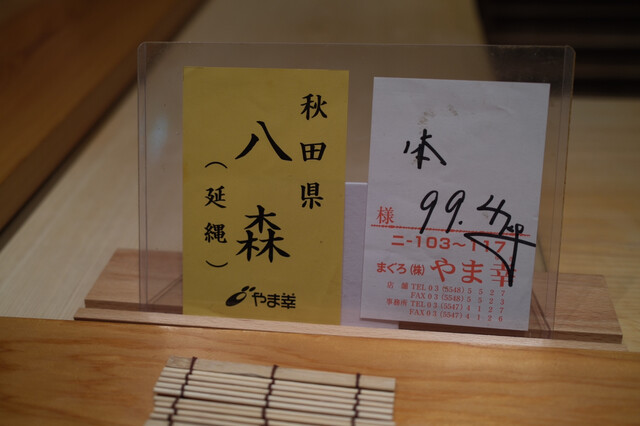 秋田県
八森
(延縄)
やま幸
本
99.4kg
様
ニ-103~117
まぐろ(株)やま幸
店舗 TEL 03 (5548) 5527
FAX 03 (5548) 5
事務所 TEL 03 (5547) 4127
FAX 03 (5547) 4126